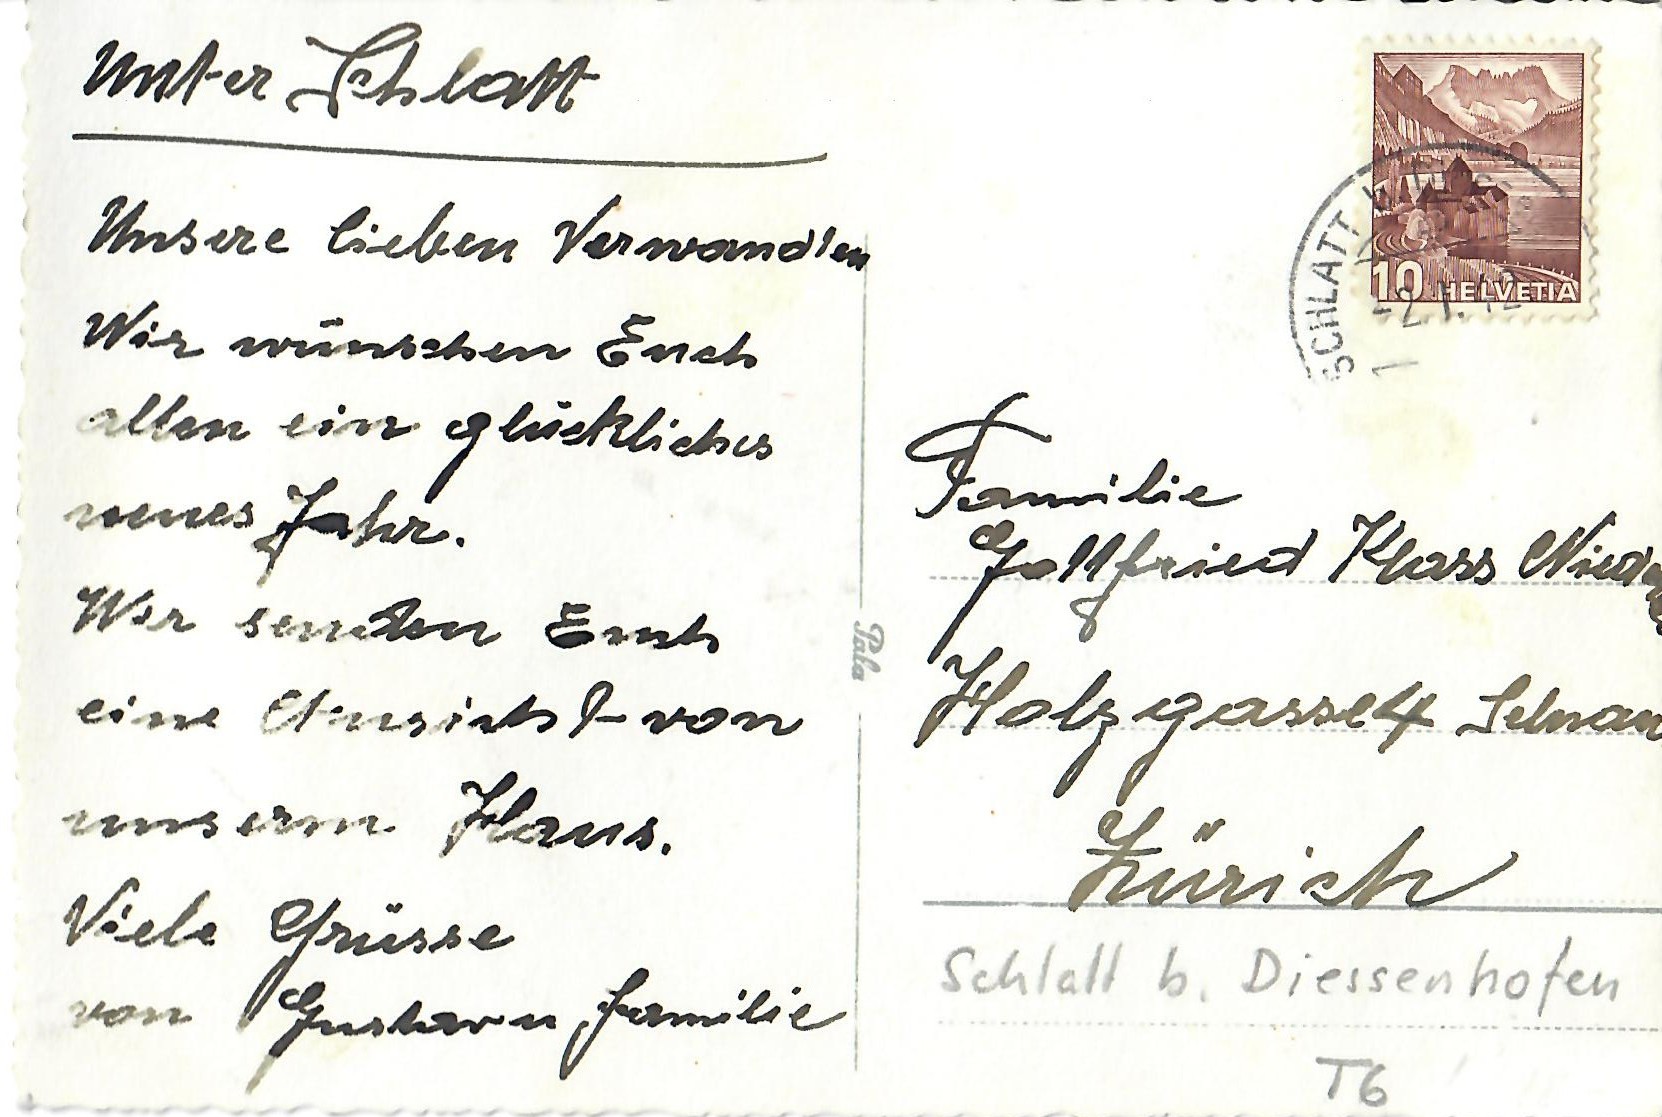 Unter Schlatt
Unsere lieben Verwandten
Wir wünschen Euch
allen ein glückliches
neues Jahr.
Wir senden Euch
eine Ansicht von
unserm Haus.
Viele Grüsse
von Gustav u Familie
10 HELVETIA
SCHLATT
Familie
Gottfried Klass
Holzgasse 4
Zürich
Pala
Schlatt b. Diessenhofen
T6